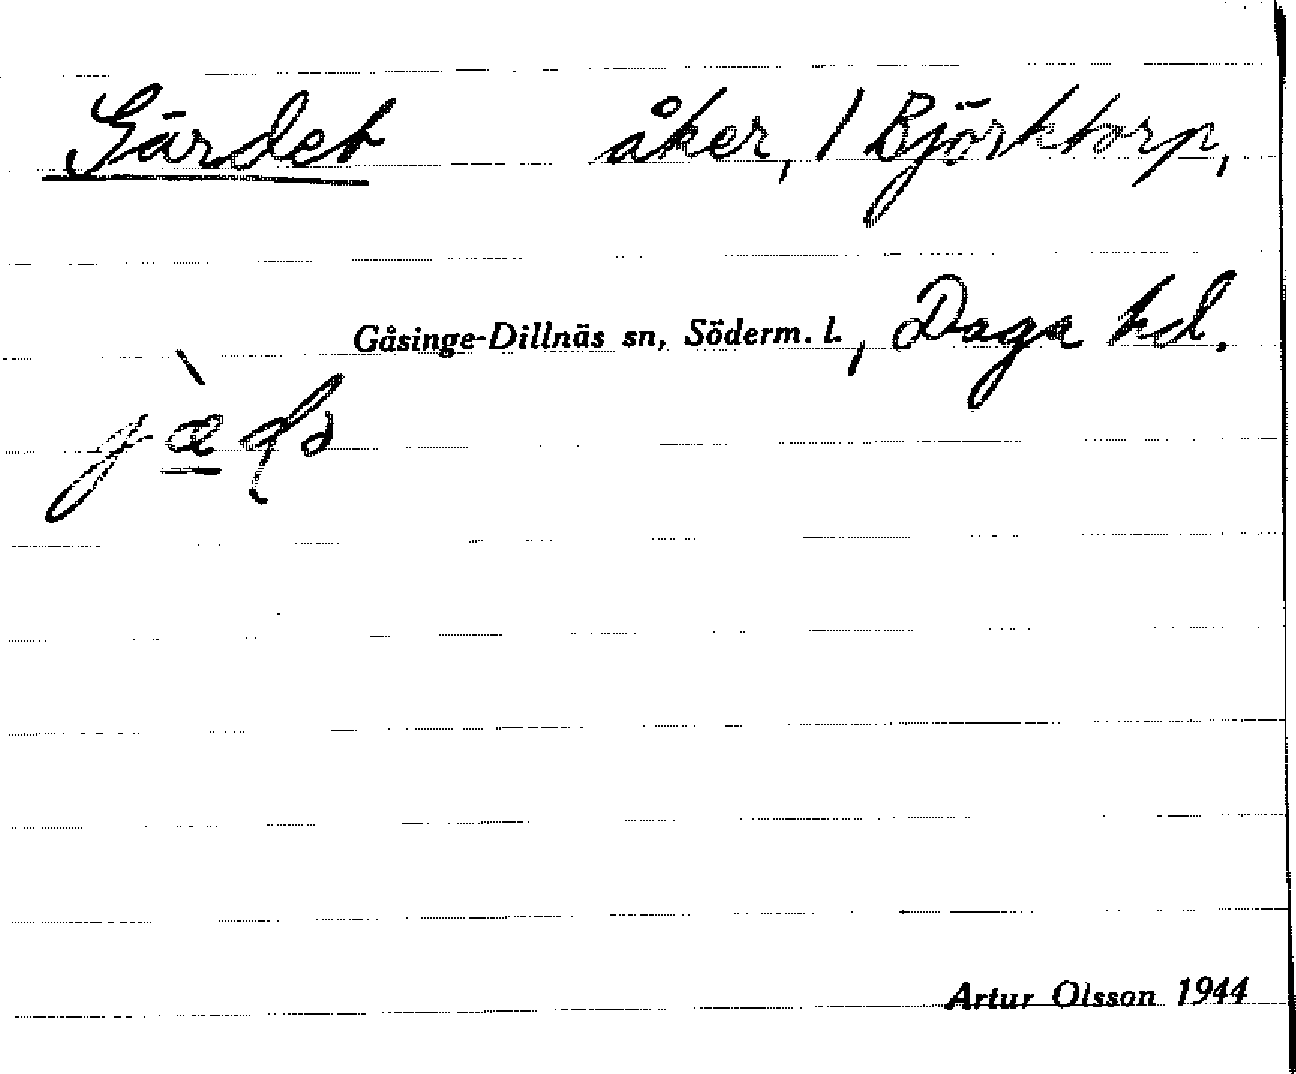 Gärdet åker, 1 Björktorp,
Gåsinge-Dillnäs sn, Söderm. l., Daga hd.
Artur Olsson 1944